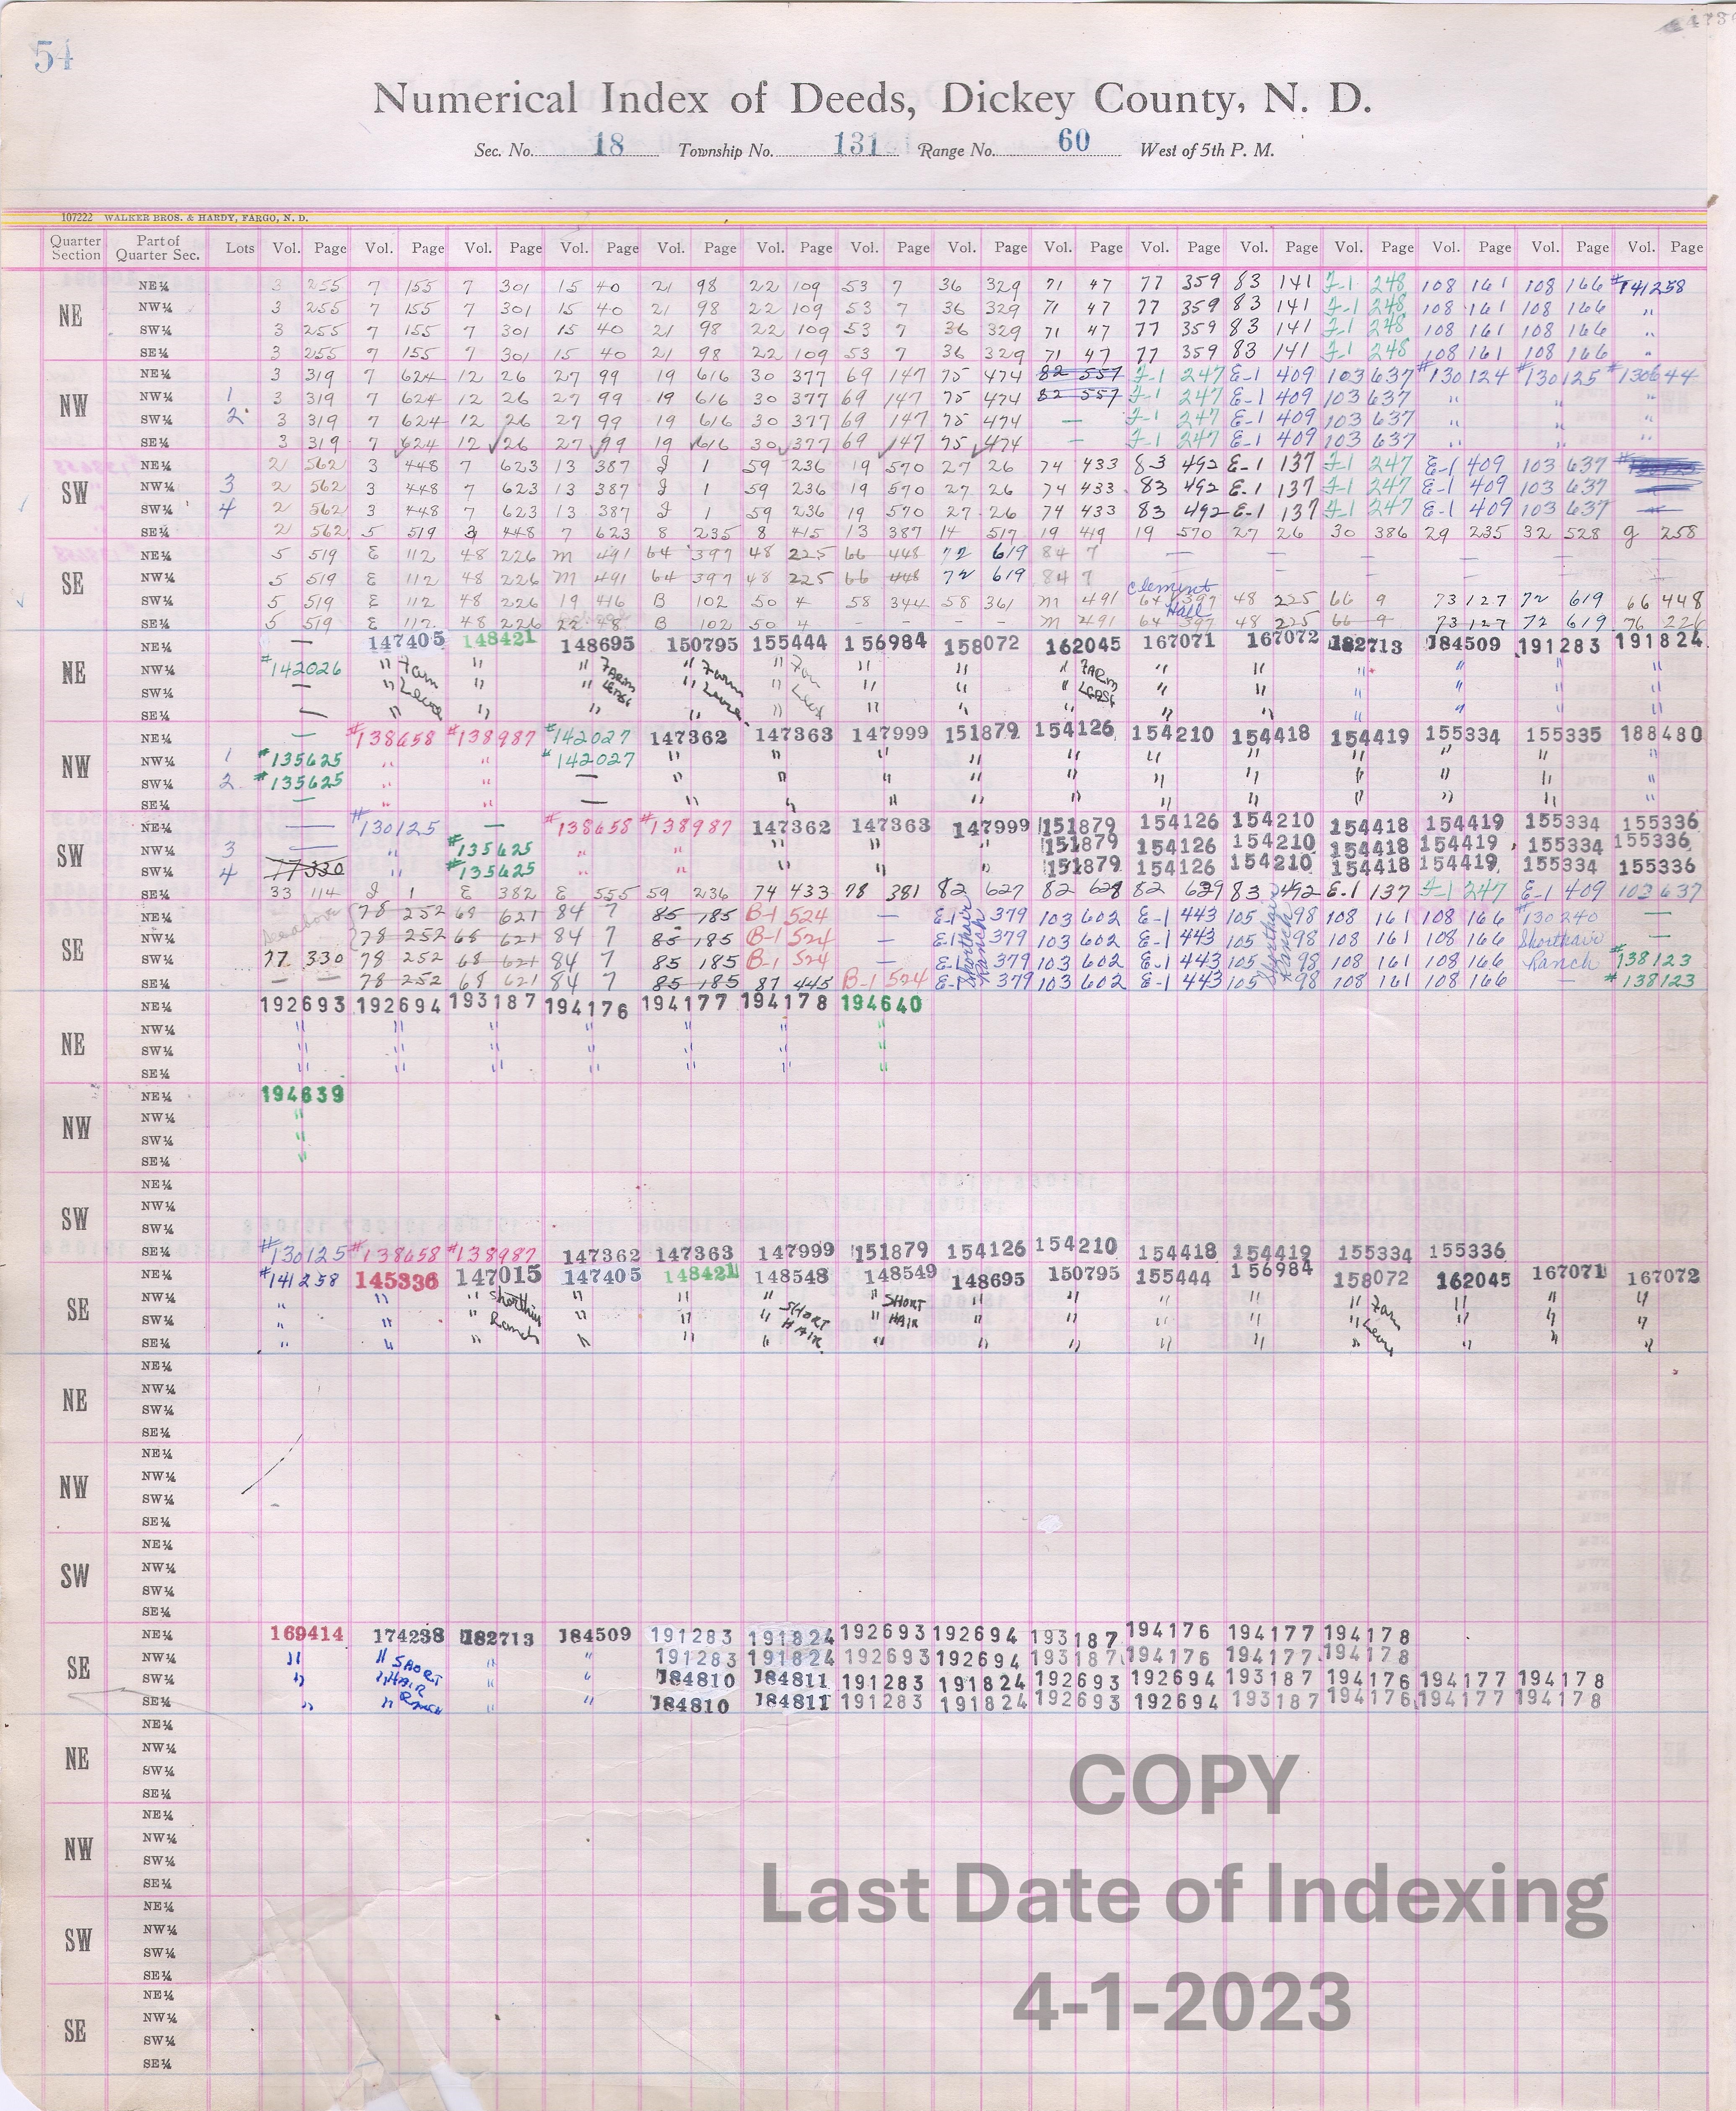 54
Numerical Index of Deeds, Dickey County, N. D.
Sec. No. 18 Township No. 131 Range No. 60 West of 5th P. M.
107222 WALKER BROS. & HARDY, FARGO, N. D.
Quarter Section Part of Quarter Sec. Lots Vol. Page Vol. Page Vol. Page Vol. Page Vol. Page Vol. Page Vol. Page Vol. Page Vol. Page Vol. Page Vol. Page Vol. Page Vol. Page Vol. Page Vol. Page
NE
NE¼ 3 255 7 155 7 301 15 40 21 98 22 109 53 7 36 329 71 47 77 359 83 141 F-1 248 108 161 108 166 #141258
NW¼ 3 255 7 155 7 301 15 40 21 98 22 109 53 7 36 329 71 47 77 359 83 141 F-1 248 108 161 108 166 "
SW¼ 3 255 7 155 7 301 15 40 21 98 22 109 53 7 36 329 71 47 77 359 83 141 F-1 248 108 161 108 166 "
SE¼ 3 255 7 155 7 301 15 40 21 98 22 109 53 7 36 329 71 47 77 359 83 141 F-1 248 108 161 108 166 "
NW
NE¼ 3 319 7 624 12 26 27 99 19 616 30 377 69 147 75 474 82 557 F-1 247 E-1 409 103 637 #130124 #130125 #130644
NW¼ 1 3 319 7 624 12 26 27 99 19 616 30 377 69 147 75 474 82 557 F-1 247 E-1 409 103 637 " " "
SW¼ 2 3 319 7 624 12 26 27 99 19 616 30 377 69 147 75 474 — F-1 247 E-1 409 103 637 " " "
SE¼ 3 319 7 624 12 26 27 99 19 616 30 377 69 147 75 474 — F-1 247 E-1 409 103 637 " " "
SW
NE¼ 2 562 3 448 7 623 13 387 J 1 59 236 19 570 27 26 74 433 83 492 E-1 137 F-1 247 E-1 409 103 637
NW¼ 3 2 562 3 448 7 623 13 387 J 1 59 236 19 570 27 26 74 433 83 492 E-1 137 F-1 247 E-1 409 103 637
SW¼ 4 2 562 3 448 7 623 13 387 J 1 59 236 19 570 27 26 74 433 83 492 E-1 137 F-1 247 E-1 409 103 637
SE¼ 2 562 5 519 3 448 7 623 8 235 8 415 13 387 14 517 19 419 19 570 27 26 30 386 29 235 32 528 g 258
SE
NE¼ 5 519 E 112 48 226 M 491 64 397 48 225 66 448 72 619 84 7 — — — — — —
NW¼ 5 519 E 112 48 226 M 491 64 397 48 225 66 448 72 619 84 7 Clement — — — —
SW¼ 5 519 E 112 48 226 19 416 B 102 50 4 58 344 58 361 M 491 64 397 48 225 66 9 73 127 72 619 66 448
Hall
SE¼ 5 519 E 112 48 226 22 48 B 102 50 4 - - - - M 491 64 397 48 225 66 9 73 127 72 619 76 226
NE
NE¼ — 147405 148421 148695 150795 155444 156984 158072 162045 167071 167072 182713 184509 191283 191824
NW¼ #142026 " Farm " " FARM " Farm " Farm " " " FARM " " " " " "
SW¼ — " Lease " " LEASE " Lease " Lease " " " LEASE " " " " " "
SE¼ — " " " " " " " " " " " " " "
NW
NE¼ — #138658 #138987 #142027 147362 147363 147999 151879 154126 154210 154418 154419 155334 155335 188480
NW¼ 1 #135625 " " #142027 " " " " " " " " " " "
SW¼ 2 #135625 " " — " " " " " " " " " " "
SE¼ — " " — " " " " " " " " " " "
SW
NE¼ — #130125 — #138658 #138987 147362 147363 147999 151879 154126 154210 154418 154419 155334 155336
NW¼ 3 — " #135625 " " " " " 151879 154126 154210 154418 154419 155334 155336
SW¼ 4 77 330 " #135625 " " " " " 151879 154126 154210 154418 154419 155334 155336
SE¼ 33 114 J 1 E 382 E 555 59 236 74 433 78 381 82 627 82 628 82 629 83 492 E-1 137 F-1 247 E-1 409 103 637
SE
NE¼ See above 78 252 68 621 84 7 85 185 B-1 524 — E-1 379 103 602 E-1 443 105 98 108 161 108 166 #130240 —
NW¼ 78 252 68 621 84 7 85 185 B-1 524 — E-1 379 103 602 E-1 443 105 98 108 161 108 166 Shorthair —
SW¼ 77 330 78 252 68 621 84 7 85 185 B-1 524 — E-1 379 103 602 E-1 443 105 98 108 161 108 166 Ranch #138123
SE¼ — — 78 252 68 621 84 7 85 185 87 445 B-1 524 E-1 379 103 602 E-1 443 105 98 108 161 108 166 — #138123
Shorthair Ranch
Shorthair Ranch
NE
NE¼ 192693 192694 193187 194176 194177 194178 194640
NW¼ " " " " " " "
SW¼ " " " " " " "
SE¼ " " " " " " "
NW
NE¼ 194639
NW¼ "
SW¼ "
SE¼ "
SW
NE¼
NW¼
SW¼
SE¼ #130125 #138658 #138987 147362 147363 147999 151879 154126 154210 154418 154419 155334 155336
SE
NE¼ #141258 145336 147015 147405 148421 148548 148549 148695 150795 155444 156984 158072 162045 167071 167072
NW¼ " " " Shorthair " " " SHORT " SHORT " " " " " Farm " " "
SW¼ " " " Ranch " " " HAIR " HAIR " " " " " Lease " " "
SE¼ " " " " " " " " " " " " " " "
NE
NE¼
NW¼
SW¼
SE¼
NW
NE¼
NW¼
SW¼
SE¼
SW
NE¼
NW¼
SW¼
SE¼
SE
NE¼ 169414 174238 182713 184509 191283 191824 192693 192694 193187 194176 194177 194178
NW¼ " " SHORT " " 191283 191824 192693 192694 193187 194176 194177 194178
SW¼ " " HAIR " " 184810 184811 191283 191824 192693 192694 193187 194176 194177 194178
SE¼ " " RANCH " " 184810 184811 191283 191824 192693 192694 193187 194176 194177 194178
NE
NE¼
NW¼
SW¼
SE¼
NW
NE¼
NW¼
SW¼
SE¼
SW
NE¼
NW¼
SW¼
SE¼
SE
NE¼
NW¼
SW¼
SE¼
COPY
Last Date of Indexing
4-1-2023